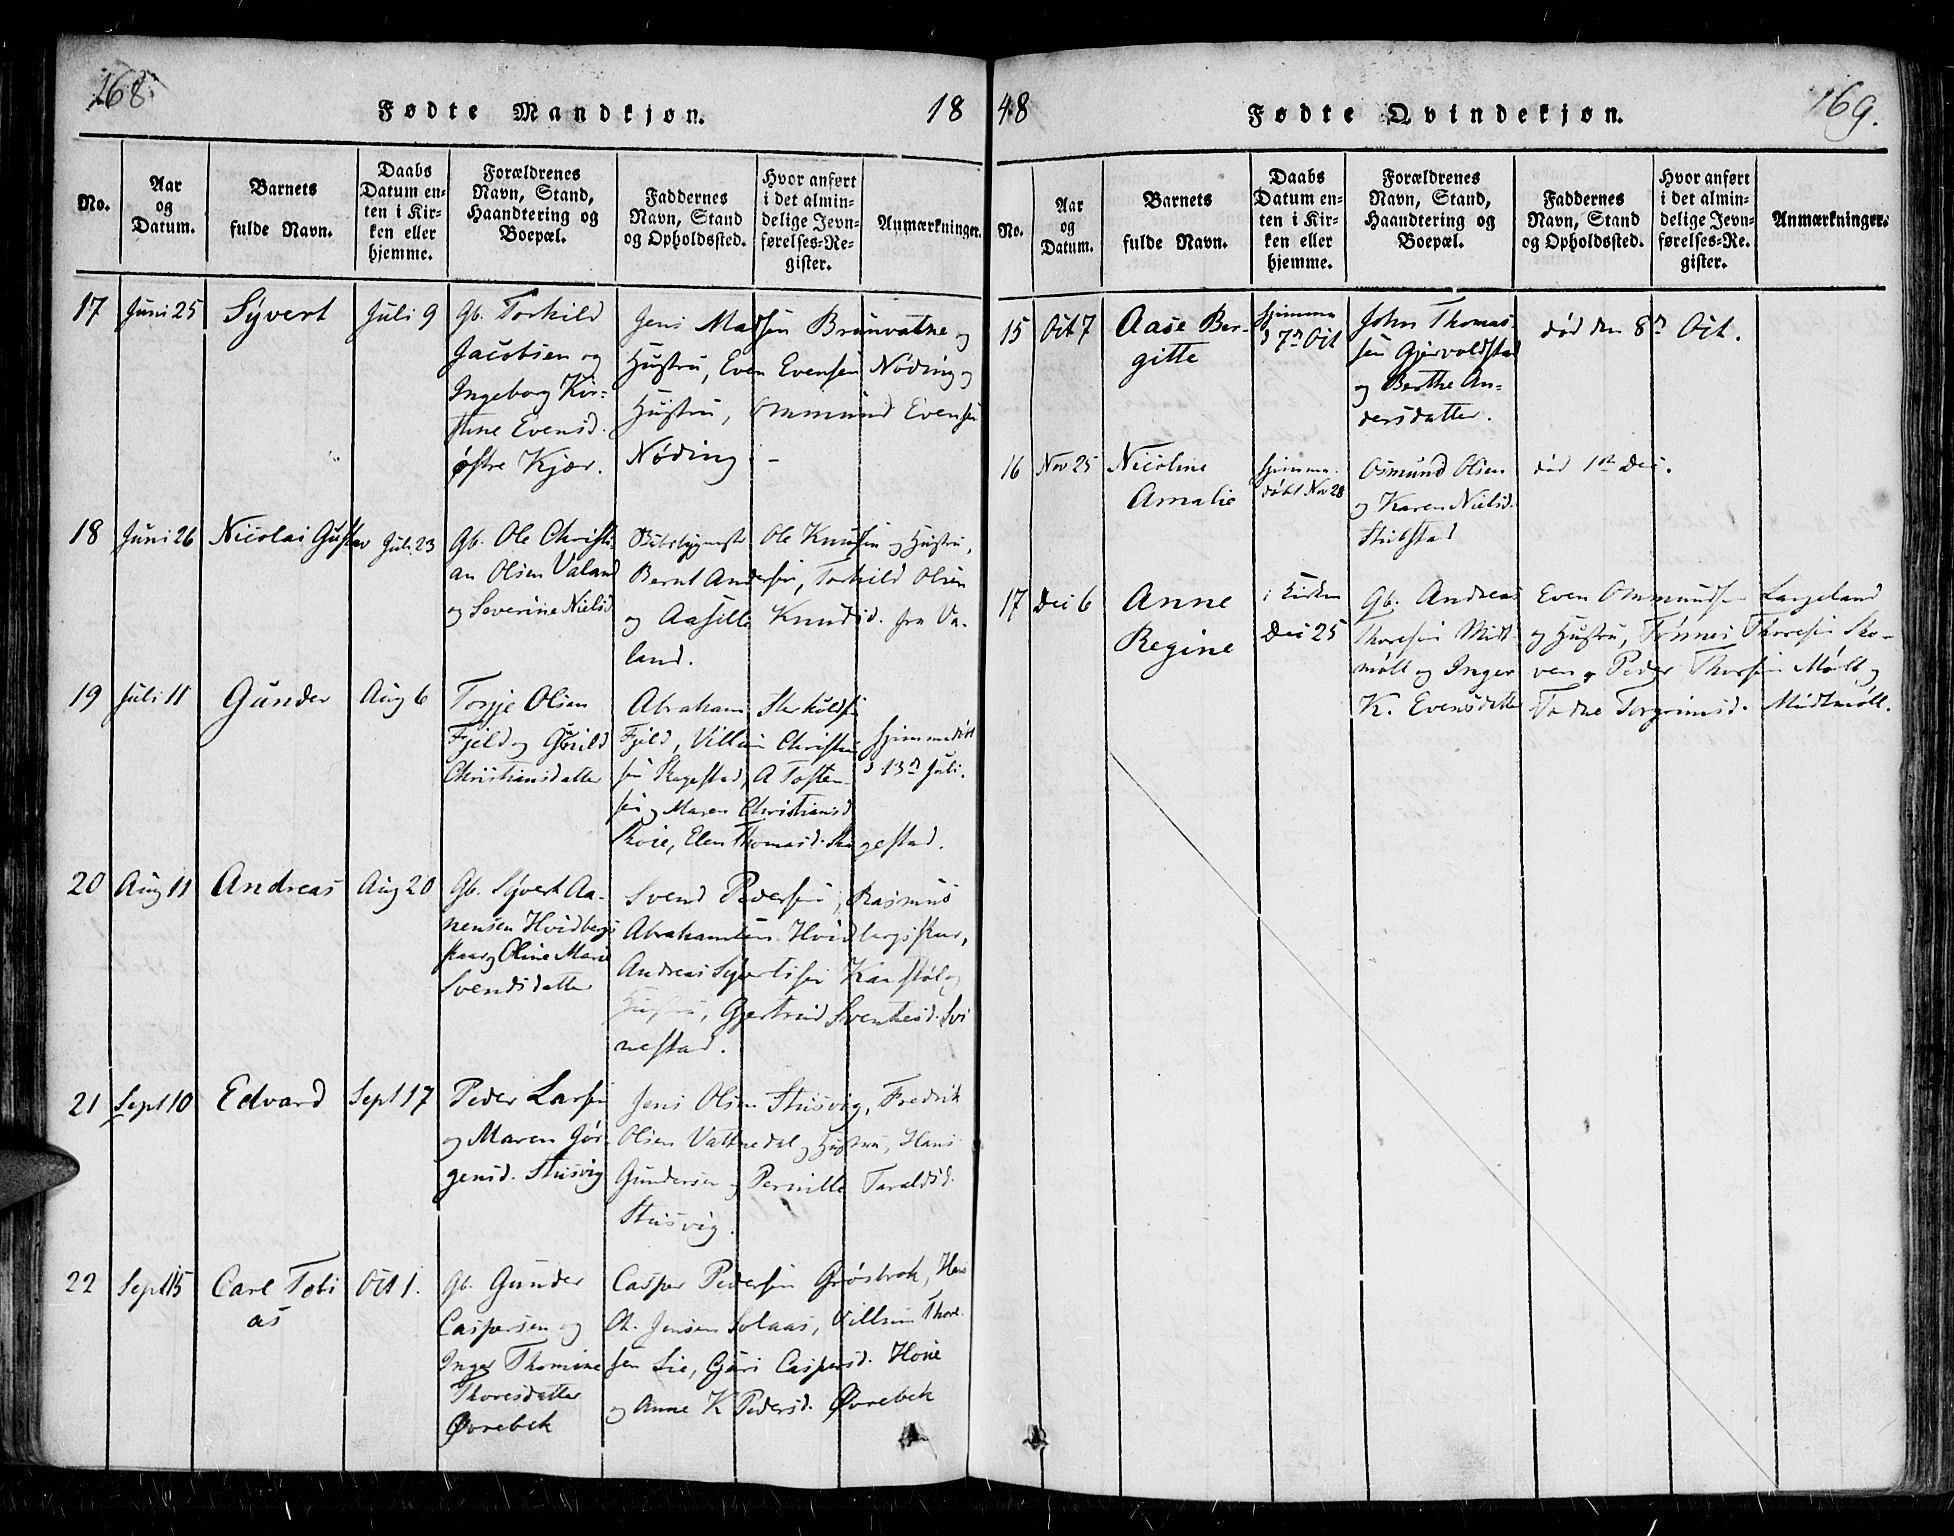 168.
Fødte Mandkjøn.
18
No.
Aar og Datum.
Barnets fulde Navn.
Daabs Datum enten i Kirken eller hjemme.
Forældrenes Navn, Stand, Haandtering og Boepæl.
Faddernes Navn, Stand og Opholdssted.
Hvor anført i det almindelige Jevnførelses-Register.
Anmærkninger.
17
Juni 25
Syvert
Juli 9
Gb. Torkild
Jacobsen og
Ingeborg Kir-
stine Evensd.
østre Kjær.
Jens Madsen Brunvatne og
Hustru, Even Evensen Nøding og
Hustru, Ommund Evensen
Nøding –
18
Juni 26
Nicolai Gustav
Juli 23
Gb. Ole Christi-
an Olsen Valand
og Severine Nielsd.
Ole Knudsen og Hustru,
Bernt Andersen, Torkild Olsen
og Aasille Knudsd. fra Va-
land.
19
Juli 11
Gunder
Aug 6
Tonje Olsen
Fjeld og Gunild
Christiansdatter
Abraham Sterkoldsen
Fjeld, Villum Christen-
sen Skagestad, A Tosten-
sen, Maren Christiansd
Skoie, Elen Thomasd. Skagestad.
hjemmedøbt
d 13de Juli.
20
Aug 11
Andreas
Aug 20
Gb. Syvert Aa-
nensen Hvidbergs
skaar og Oline Marie
Svendsdatter
Svend Pedersen, Rasmus
Abrahamsen Hvidbergskar,
Andreas Syvertsen Karstøl og
Hustru, Gjertrud Svenkesd. Svi
nestad.
21
Sept 10
Edvard
Sept 17
Peder Larsen
og Maren Jør-
gensd. Stusvig
Jens Olsen Stusvig, Fredrik
Olsen Vatnedal og Hustru, Hans
Gundersen og Pernille Taraldsd.
Stusvig.
22
Sept 15
Carl Tobi
as
Oct 1.
Gb. Gunder
Caspersen og
Inger Thomine
Thoresdatter
Øvrebek
Casper Pedersen Grøsbrok, Hans
Ch. Jensen Solaas, Villum Thore-
sen Lie, Guri Caspersd. Hoie
og Anne K Pedersd. Øvrebek
48
Fødte Qvindekjøn.
169.
No.
Aar og Datum.
Barnets fulde Navn.
Daabs Datum enten i Kirken eller hjemme.
Forældrenes Navn, Stand, Haandtering og Boepæl.
Faddernes Navn, Stand og Opholdssted.
Hvor anført i det almindelige Jevnførelses-Re. gister.
Anmærkninger.
15
Oct 7
Aase Ber-
gitte
hjemme
d 7de Oct
John Thomas-
sen Gjervoldstad
og Berthe An-
dersdatter.
død den 8de Oct.
16
Nov 25
Nicoline
Amalie
hjemme-
døbt Nov 28
Osmund Olsen
og Karen Nielsd.
Stubstad
død 1ste Dec.
17
Dec 6
Anne
Regine
i Kirken
Dec 25
Gb. Andreas
Thoresen Midt-
møll og Inger
K. Evensdatter
Even Ommundsen Langeland
og Hustru, Tønnes Thoresen Sko-
ven, Peder Thoresen Møll og
Todne Torgrimsd. Midtmøll.